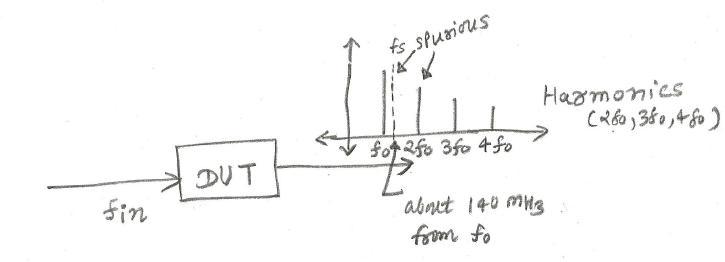 fs spurious
Harmonics
(2f0, 3f0, 4f0)
f0 2f0 3f0 4f0
DUT
fin
about 140 MHz
from f0